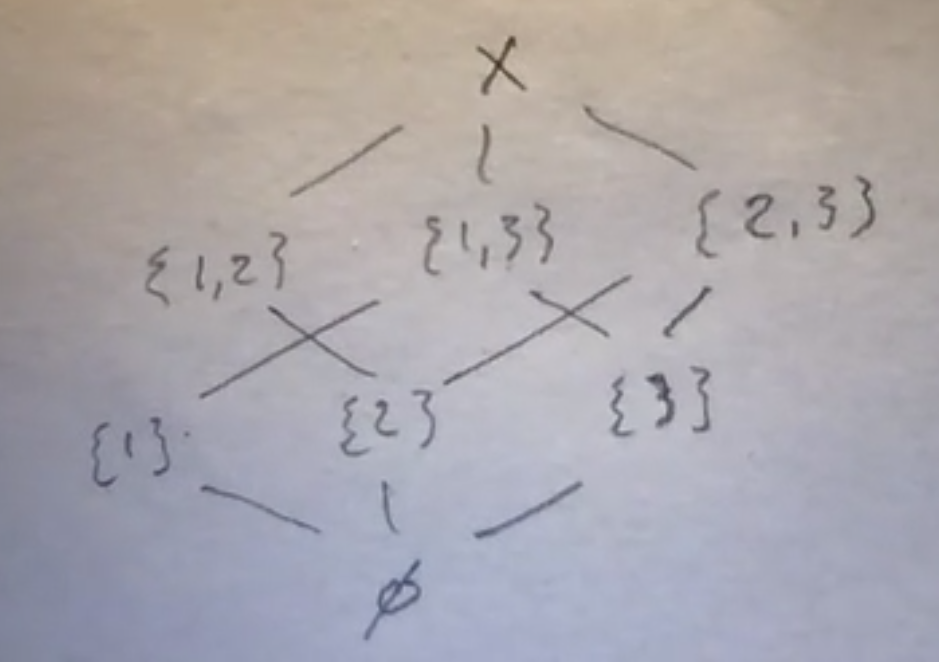 X
{1,2} {1,3} {2,3}
{1} {2} {3}
∅